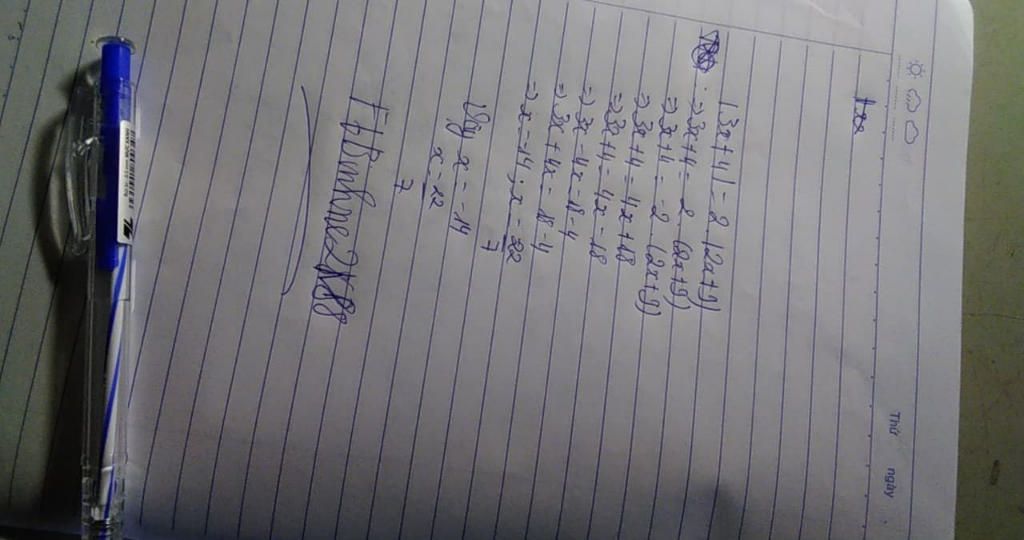 Thứ ngày
|3x+4| = 2.|2x+9|
=> 3x+4 = 2.(2x+9)
=> 3x+4 = -2.(2x+9)
=> 3x+4 = 4x+18
=> 3x+4 = -4x-18
=> 3x-4x = 18-4
=> 3x+4x = -18-4
=> x = -14; x = -22/7
Vậy x = -14
x = -22/7